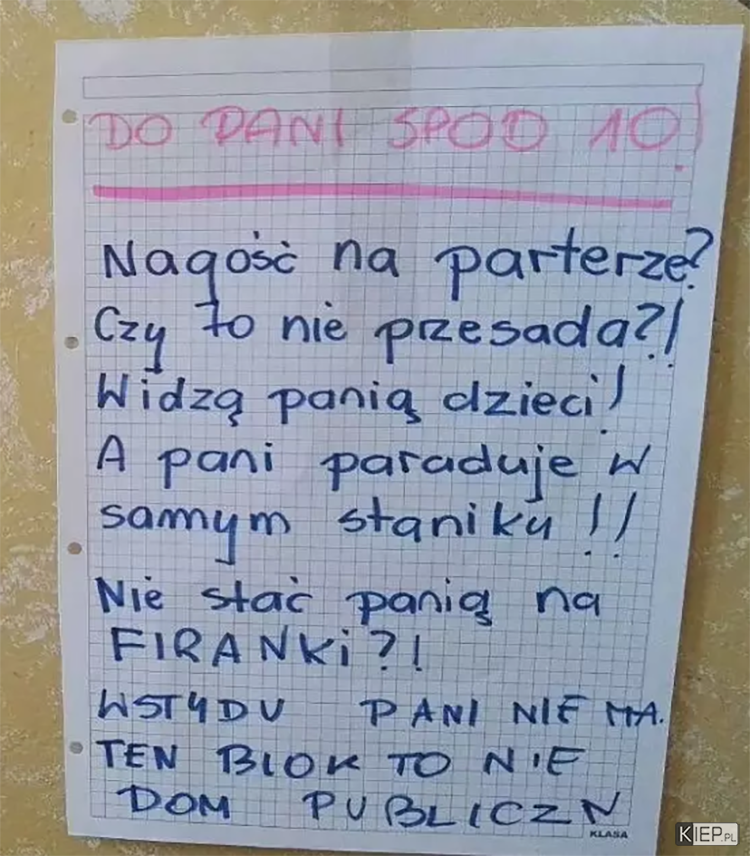 DO PANI SPOD 10!
Nagość na parterze?
Czy to nie przesada?!
Widzą panią dzieci!
A pani paraduje w
samym staniku!!
Nie stać panią na
FIRANKi?!
WSTYDU PANI NIE MA.
TEN BLOK TO NIE
DOM PUBLICZN
KLASA
KIEP.PL